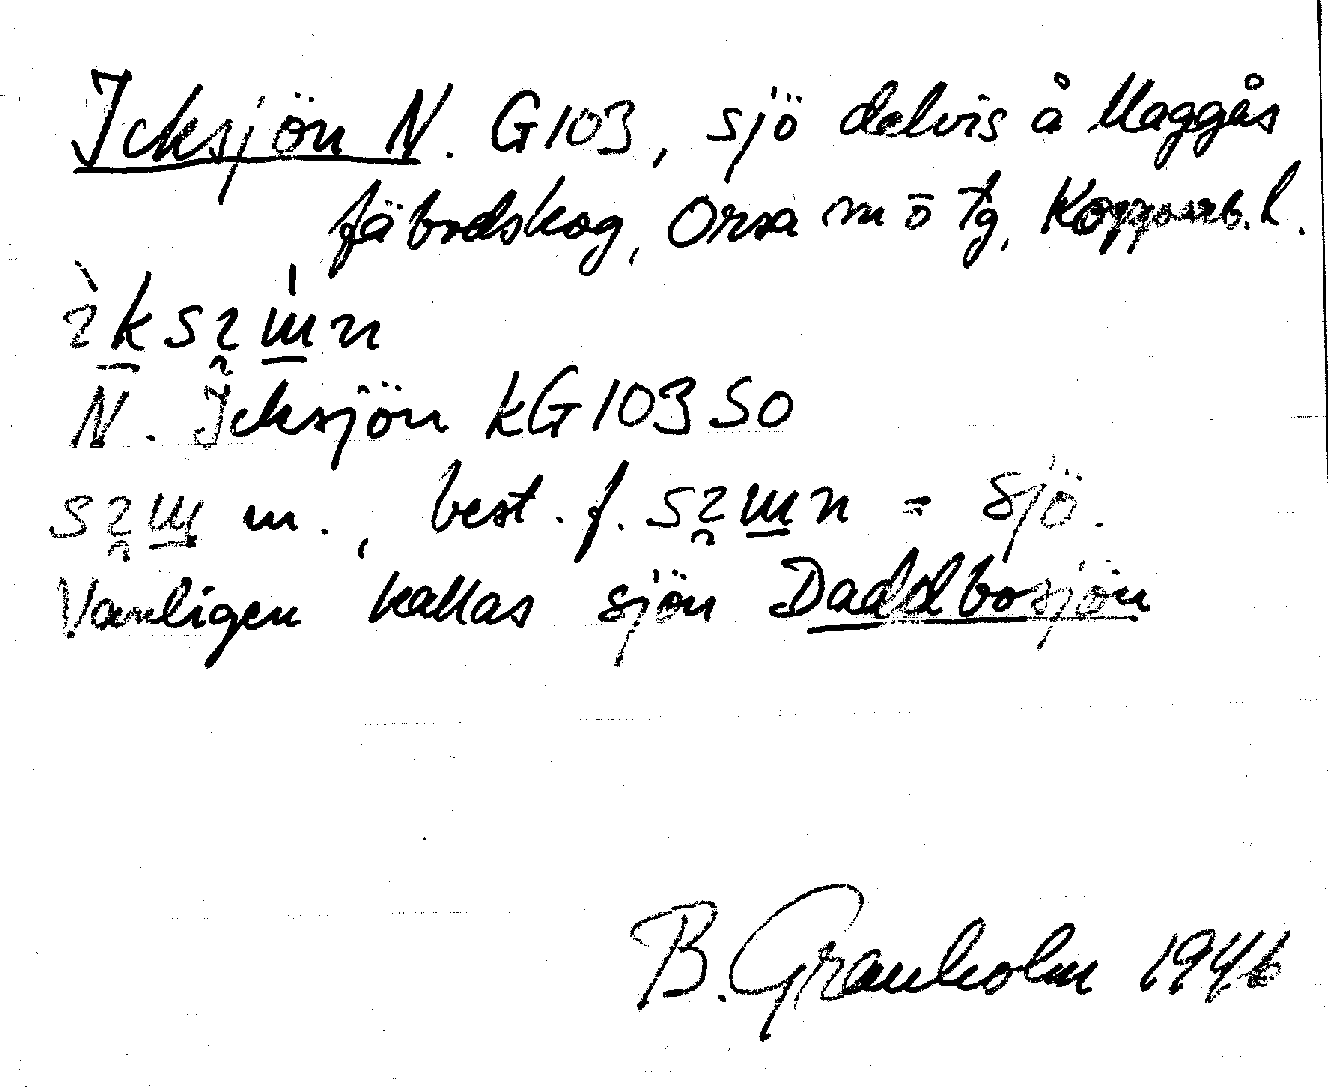 Icksjön N. G103, sjö delvis å Maggås
fäbodskog, Orsa m ö tg, Kopparb. l.
N. Icksjön kG103 SO
m., best. f. = sjö.
Vanligen kallas sjön Daddbosjön
B. Granholm 1946